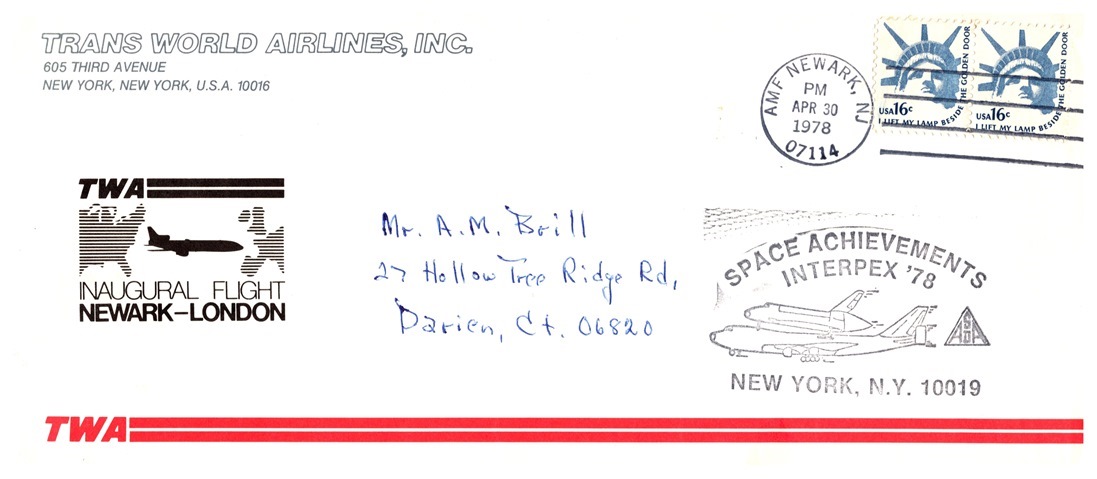 TRANS WORLD AIRLINES, INC.
605 THIRD AVENUE
NEW YORK, NEW YORK, U.S.A. 10016
AMF NEWARK, NJ
PM
APR 30
1978
07114
USA 16c
I LIFT MY LAMP BESIDE THE GOLDEN DOOR
USA 16c
I LIFT MY LAMP BESIDE THE GOLDEN DOOR
TWA
INAUGURAL FLIGHT
NEWARK-LONDON
Mr. A.M. Brill
27 Hollow Tree Ridge Rd,
Darien, Ct. 06820
SPACE ACHIEVEMENTS
INTERPEX '78
ASDA
NEW YORK, N.Y. 10019
TWA